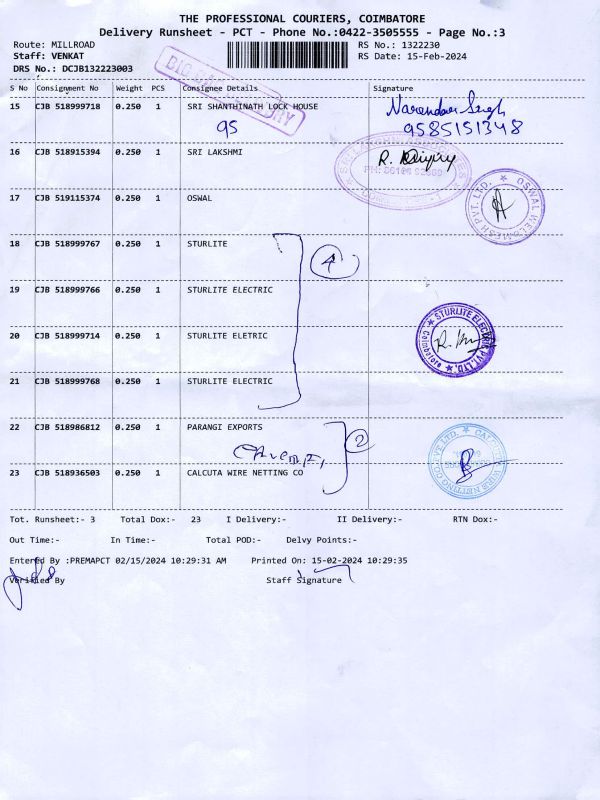 THE PROFESSIONAL COURIERS, COIMBATORE
Delivery Runsheet - PCT - Phone No.:0422-3505555 - Page No.:3
Route: MILLROAD RS No.: 1322230
Staff: VENKAT RS Date: 15-Feb-2024
DRS No.: DCJB132223003
S No Consignment No Weight PCS Consignee Details Signature
15 CJB 518999718 0.250 1 SRI SHANTHINATH LOCK HOUSE
95 9585151348
16 CJB 518915394 0.250 1 SRI LAKSHMI
17 CJB 519115374 0.250 1 OSWAL
OSWAL PVT. LTD.
18 CJB 518999767 0.250 1 STURLITE
4
19 CJB 518999766 0.250 1 STURLITE ELECTRIC
20 CJB 518999714 0.250 1 STURLITE ELETRIC
STURLITE ELECTRIC PVT. LTD. Coimbatore
21 CJB 518999768 0.250 1 STURLITE ELECTRIC
22 CJB 518986812 0.250 1 PARANGI EXPORTS
2
23 CJB 518936503 0.250 1 CALCUTA WIRE NETTING CO
Tot. Runsheet:- 3 Total Dox:- 23 I Delivery:- II Delivery:- RTN Dox:-
Out Time:- In Time:- Total POD:- Delvy Points:-
Entered By :PREMAPCT 02/15/2024 10:29:31 AM Printed On: 15-02-2024 10:29:35
Verified By Staff Signature